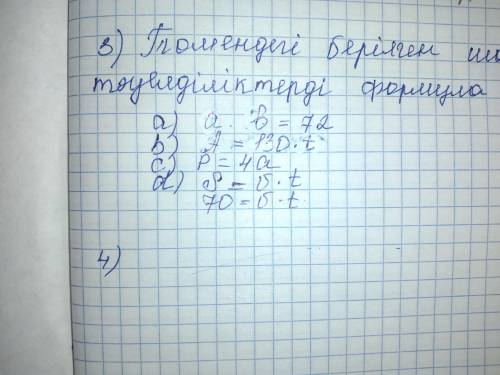 3) Төмендегі берілген ша
тәуелділіктерді формула
a) a · b = 72
b) A = 130 · t
c) P = 4a
d) S = v · t
70 = v · t
4)